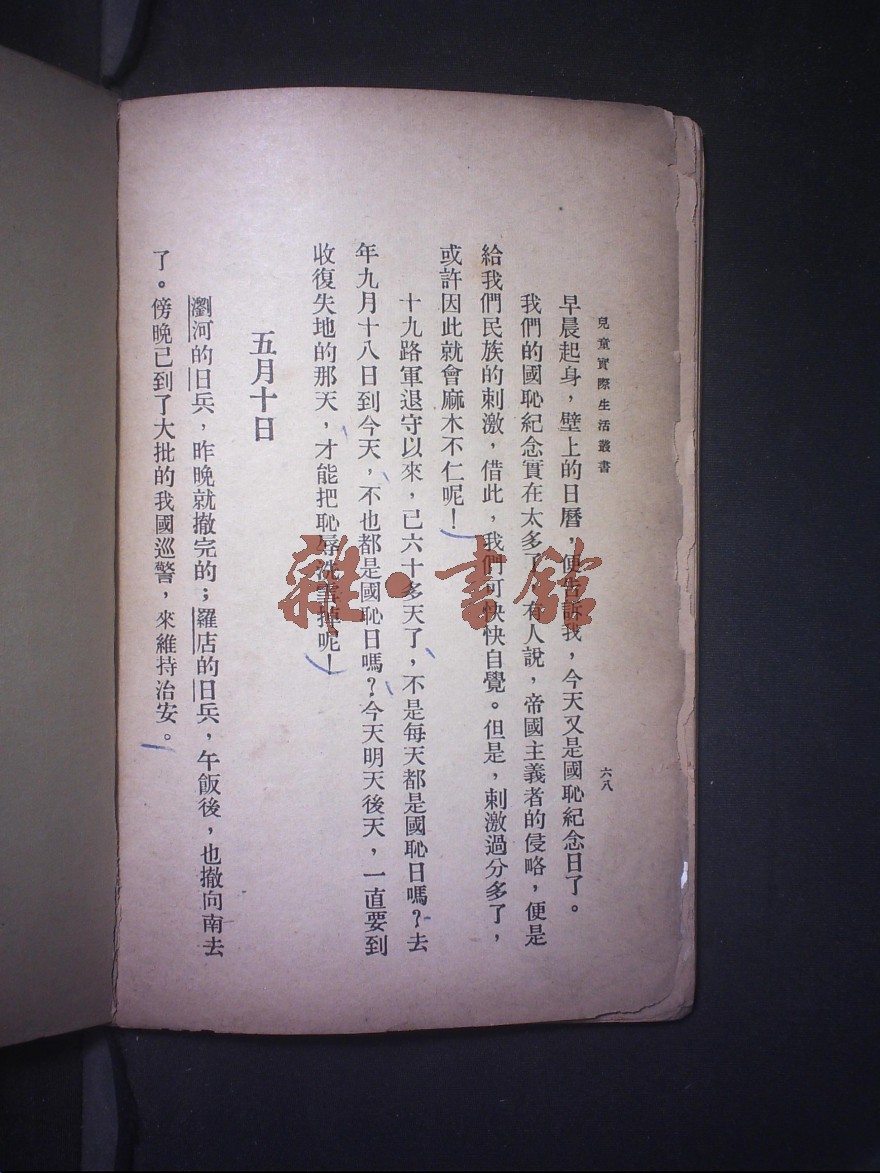 兒童實際生活叢書
六八
早晨起身，壁上的日曆，便告訴我，今天又是國恥紀念日了。
我們的國恥紀念實在太多了，有人說，帝國主義者的侵略，便是
給我們民族的刺激，借此，我們可快快自覺。但是，刺激過分多了，
或許因此就會麻木不仁呢！
十九路軍退守以來，已六十多天了，不是每天都是國恥日嗎？去
年九月十八日到今天，不也都是國恥日嗎？今天明天後天，一直要到
收復失地的那天，才能把恥辱洗雪掉呢！
五月十日
瀏河的日兵，昨晚就撤完的；羅店的日兵，午飯後，也撤向南去
了。傍晚已到了大批的我國巡警，來維持治安。
雜·書館